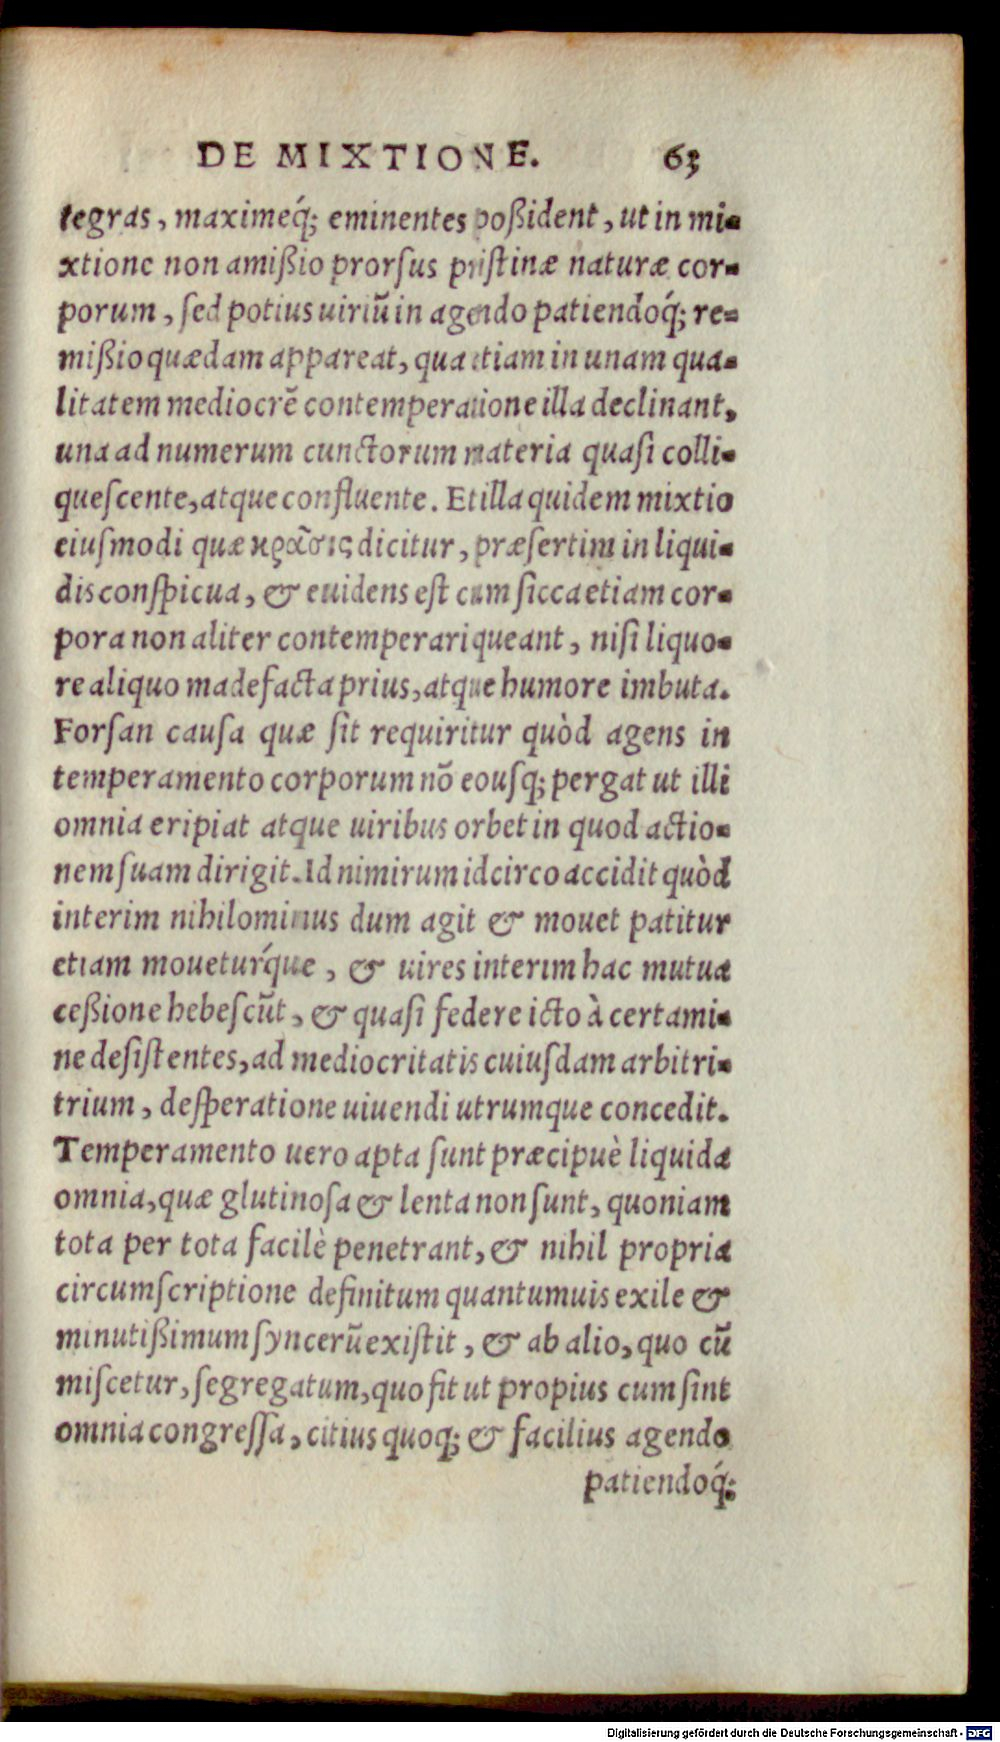 DE MIXTIONE. 63
tegras, maximeq́; eminentes poßident, ut in mi-
xtione non amißio prorſus priſtinæ naturæ cor-
porum, ſed potius uiriũ in agendo patiendoq́; re-
mißio quædam appareat, qua etiam in unam qua-
litatem mediocrẽ contemperatione illa declinant,
una ad numerum cunctorum materia quaſi colli-
queſcente, atque confluente. Et illa quidem mixtio
eiuſmodi quæ κρᾶσις dicitur, præſertim in liqui-
dis conſpicua, & euidens eſt cum ſicca etiam cor-
pora non aliter contemperari queant, niſi liquo-
re aliquo madefacta prius, atque humore imbuta.
Forſan cauſa quæ ſit requiritur quòd agens in
temperamento corporum nõ eouſq; pergat ut illi
omnia eripiat atque uiribus orbet in quod actio-
nem ſuam dirigit. Id nimirum idcirco accidit quòd
interim nihilominus dum agit & mouet patitur
etiam moueturq́ue, & uires interim hac mutua
ceßione hebeſcũt, & quaſi federe icto à certami-
ne deſiſtentes, ad mediocritatis cuiuſdam arbitri-
trium, deſperatione uiuendi utrumque concedit.
Temperamento uero apta ſunt præcipuè liquida
omnia, quæ glutinoſa & lenta non ſunt, quoniam
tota per tota facilè penetrant, & nihil propria
circumſcriptione definitum quantumuis exile &
minutißimum ſyncerũ exiſtit, & ab alio, quo cũ
miſcetur, ſegregatum, quo fit ut propius cum ſint
omnia congreſſa, citius quoq; & facilius agendo
patiendoq́;
Digitalisierung gefördert durch die Deutsche Forschungsgemeinschaft - DFG